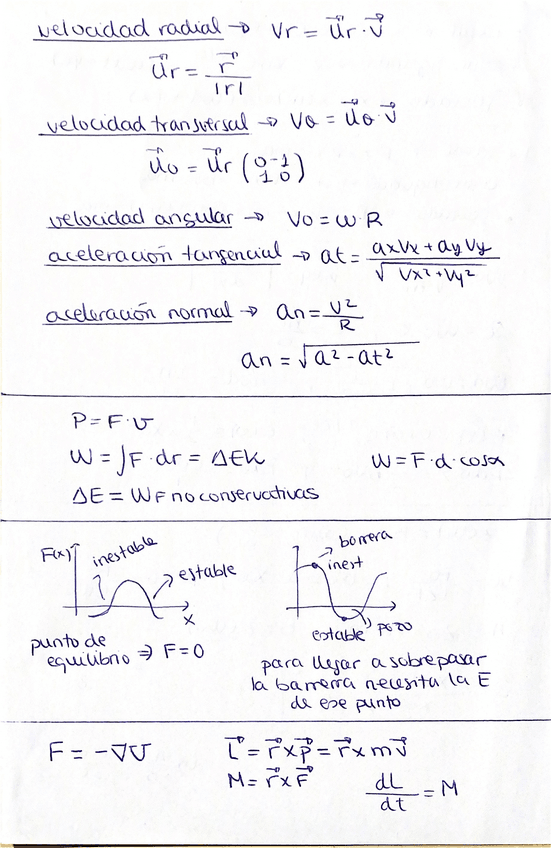 velocidad radial → Vr = u⃗r · v⃗
u⃗r = r⃗ / |r|
velocidad transversal → Vθ = u⃗θ · v⃗
u⃗θ = u⃗r (0 -1
1 0)
velocidad angular → Vθ = ω·R
aceleración tangencial → at = axVx + ayVy / √Vx² + Vy²
aceleración normal → an = V² / R
an = √a² - at²
P = F · v
W = ∫F · dr = ΔEk W = F · d · cosα
ΔE = WF no conservativas
F(x) inestable estable x
barrera
inest
estable pozo
punto de
equilibrio ⇒ F = 0
para llegar a sobrepasar
la barrera necesita la E
de ese punto
F = -∇U L⃗ = r⃗ x p⃗ = r⃗ x mv⃗
M = r⃗ x F⃗ dL / dt = M